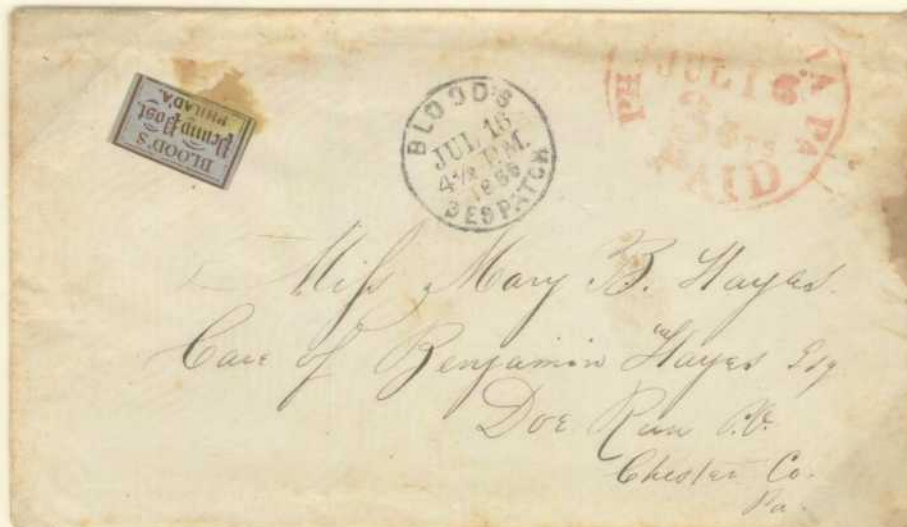 BLOOD'S
Penny Post
PHILAD'A.
BLOOD'S
JUL 16
4½ P.M.
1855
DESPATCH
PH A PA
JUL 16
3 CTS
PAID
Miss Mary B. Hayes.
Care of Benjamin Hayes Esq
Doe Run P.O.
Chester Co.
Pa.